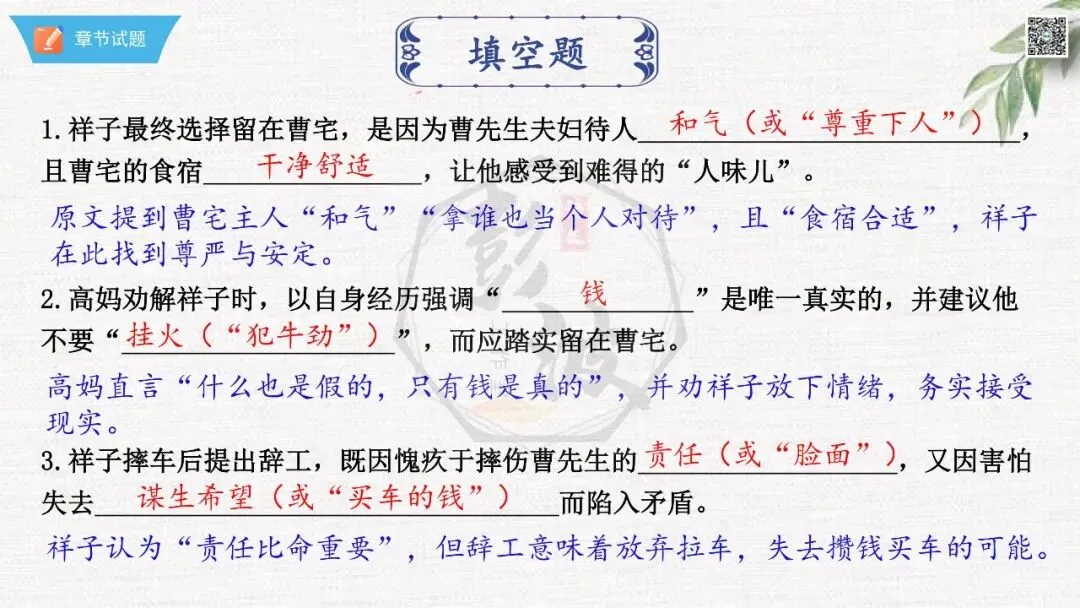 章节试题
填空题
1.祥子最终选择留在曹宅，是因为曹先生夫妇待人和气（或“尊重下人”），
且曹宅的食宿干净舒适，让他感受到难得的“人味儿”。
原文提到曹宅主人“和气”“拿谁也当个人对待”，且“食宿合适”，祥子
在此找到尊严与安定。
2.高妈劝解祥子时，以自身经历强调“钱”是唯一真实的，并建议他
不要“挂火（“犯牛劲”）”，而应踏实留在曹宅。
高妈直言“什么也是假的，只有钱是真的”，并劝祥子放下情绪，务实接受
现实。
3.祥子摔车后提出辞工，既因愧疚于摔伤曹先生的责任（或“脸面”），又因害怕
失去谋生希望（或“买车的钱”）而陷入矛盾。
祥子认为“责任比命重要”，但辞工意味着放弃拉车，失去攒钱买车的可能。